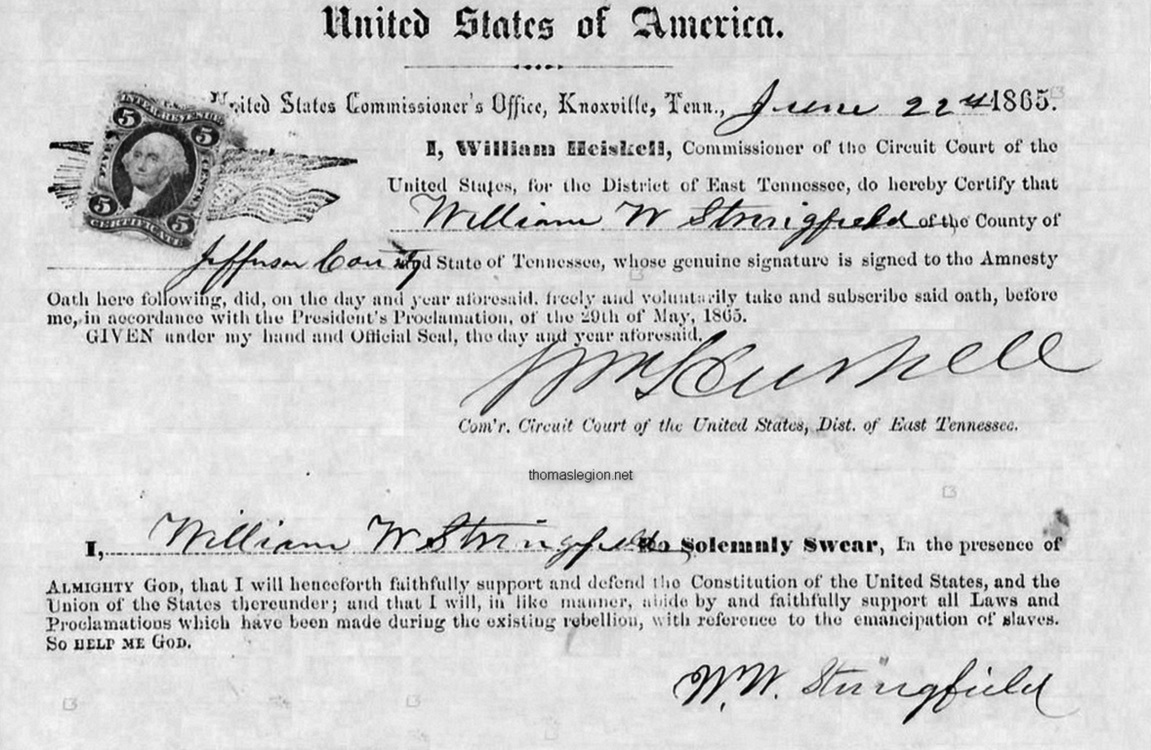 United States of America.
United States Commissioner's Office, Knoxville, Tenn., June 22d 1865.
INTER. REVENUE
5 5
FIVE CENTS
5 5
CERTIFICATE
I, William Heiskell, Commissioner of the Circuit Court of the
United States, for the District of East Tennessee, do hereby Certify that
William W Stringfield of the County of
Jefferson County and State of Tennessee, whose genuine signature is signed to the Amnesty
Oath here following, did, on the day and year aforesaid. freely and voluntarily take and subscribe said oath, before
me, in accordance with the President's Proclamation, of the 29th of May, 1865.
GIVEN under my hand and Official Seal, the day and year aforesaid.
Wm Heiskell
Com'r. Circuit Court of the United States, Dist. of East Tennessee.
thomaslegion.net
I, William W Stringfield do Solemnly Swear, In the presence of
ALMIGHTY GOD, that I will henceforth faithfully support and defend the Constitution of the United States, and the
Union of the States thereunder; and that I will, in like manner, abide by and faithfully support all Laws and
Proclamations which have been made during the existing rebellion, with reference to the emancipation of slaves.
SO HELP ME GOD.
W. W. Stringfield